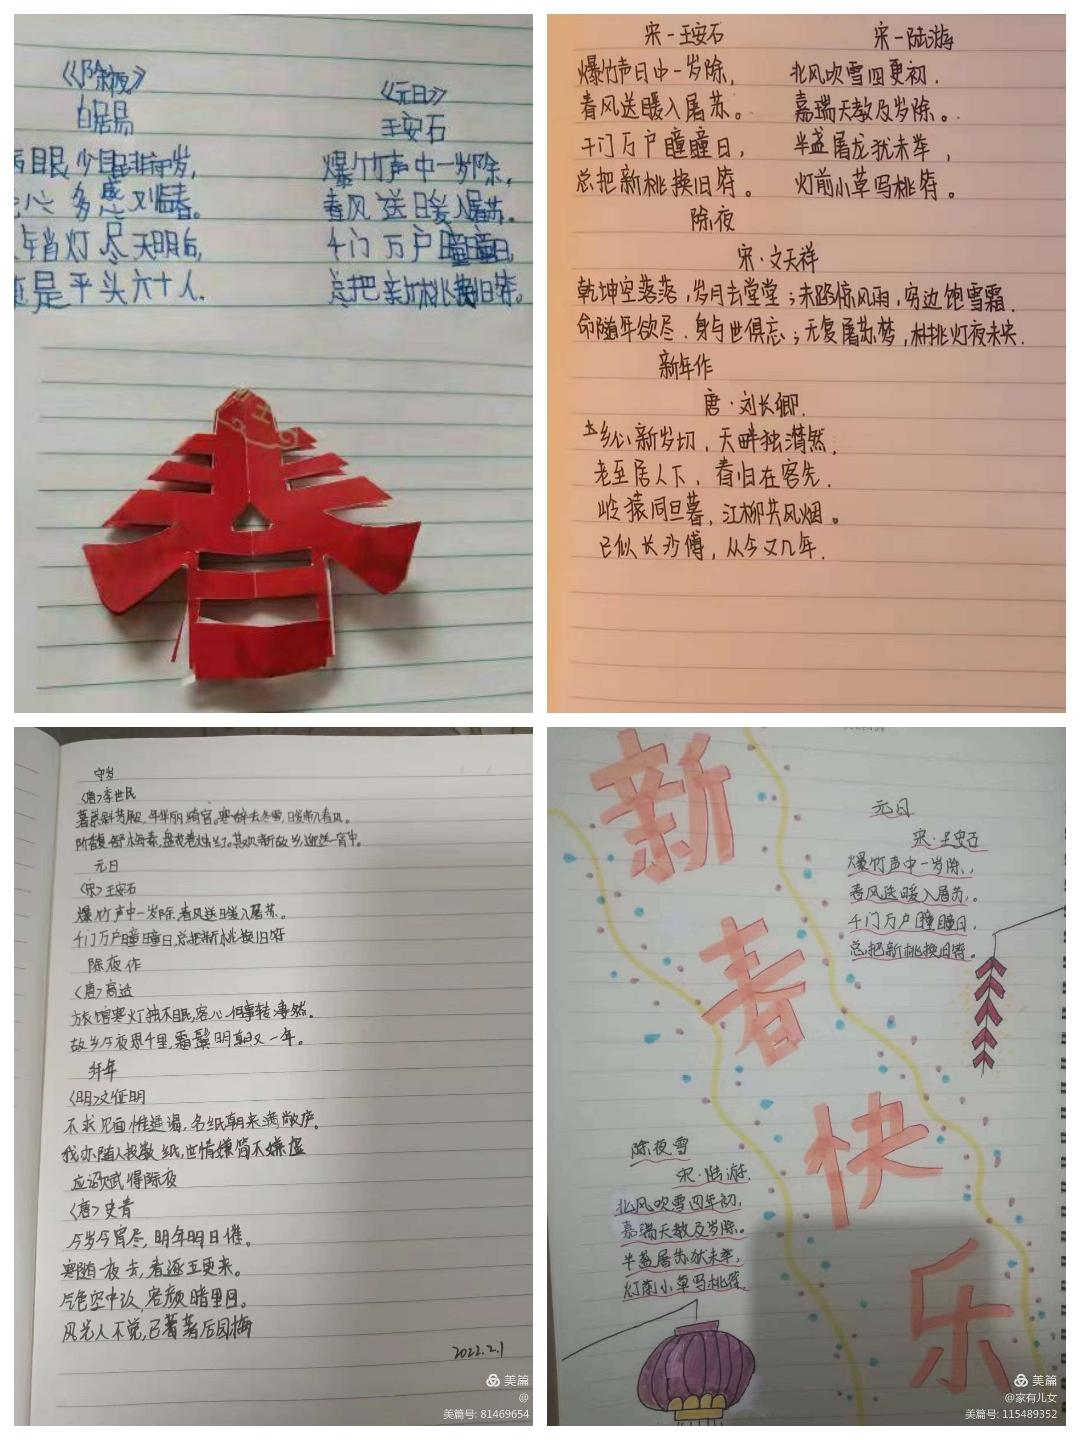 《除夜》
白居易
病眼少眠非守岁,
老心多感又临春。
年宵灯尽天明后,
便是平头六十人.
《元日》
王安石
爆竹声中一岁除,
春风送暖入屠苏。
千门万户瞳瞳日,
总把新桃换旧符。
宋-王安石
爆竹声日中一岁除,
春风送暖入屠苏。
千门万户瞳瞳日,
总把新桃换旧符。
宋-陆游
北风吹雪四更初.
嘉瑞天教及岁除。
半盏屠龙犹未举,
灯前小草写桃符。
除夜
宋·文天祥
乾坤空落落,岁月去堂堂;末路惊风雨,穷边饱雪霜.
命随年欲尽.身与世俱忘;无复屠苏梦,挑灯夜未央.
新年作
唐·刘长卿.
乡心新岁切,天畔独潸然.
老至居人下,春归在客先.
岭猿同旦暮,江柳共风烟。
已似长沙傅,从今又几年.
守岁
〈唐〉李世民
元日
〈宋〉王安石
爆竹声中一岁除,春风送暖入屠苏。
千门万户瞳瞳日,总把新桃换旧符
除夜作
〈唐〉高适
旅馆寒灯独不眠,客心何事转凄然。
故乡今夜思千里,霜鬓明朝又一年。
拜年
〈明〉文征明
不求见面惟通谒,名纸朝来满敝庐。
我亦随人投数纸,世情嫌简不嫌虚
应诏赋得除夜
〈唐〉史青
今岁今宵尽,明年明日催。
寒随一夜去,春逐五更来。
气色空中改,容颜暗里回。
风光人不觉,已着后园梅
2022.2.1
美篇
@
美篇号: 81469654
新春快乐
元日
宋·王安石
爆竹声中一岁除,
春风送暖入屠苏。
千门万户瞳瞳日,
总把新桃换旧符。
除夜雪
宋·陆游.
北风吹雪四年初,
嘉瑞天教及岁除。
半盏屠苏犹未举,
灯前小草写桃符
美篇
@家有儿女
美篇号: 115489352